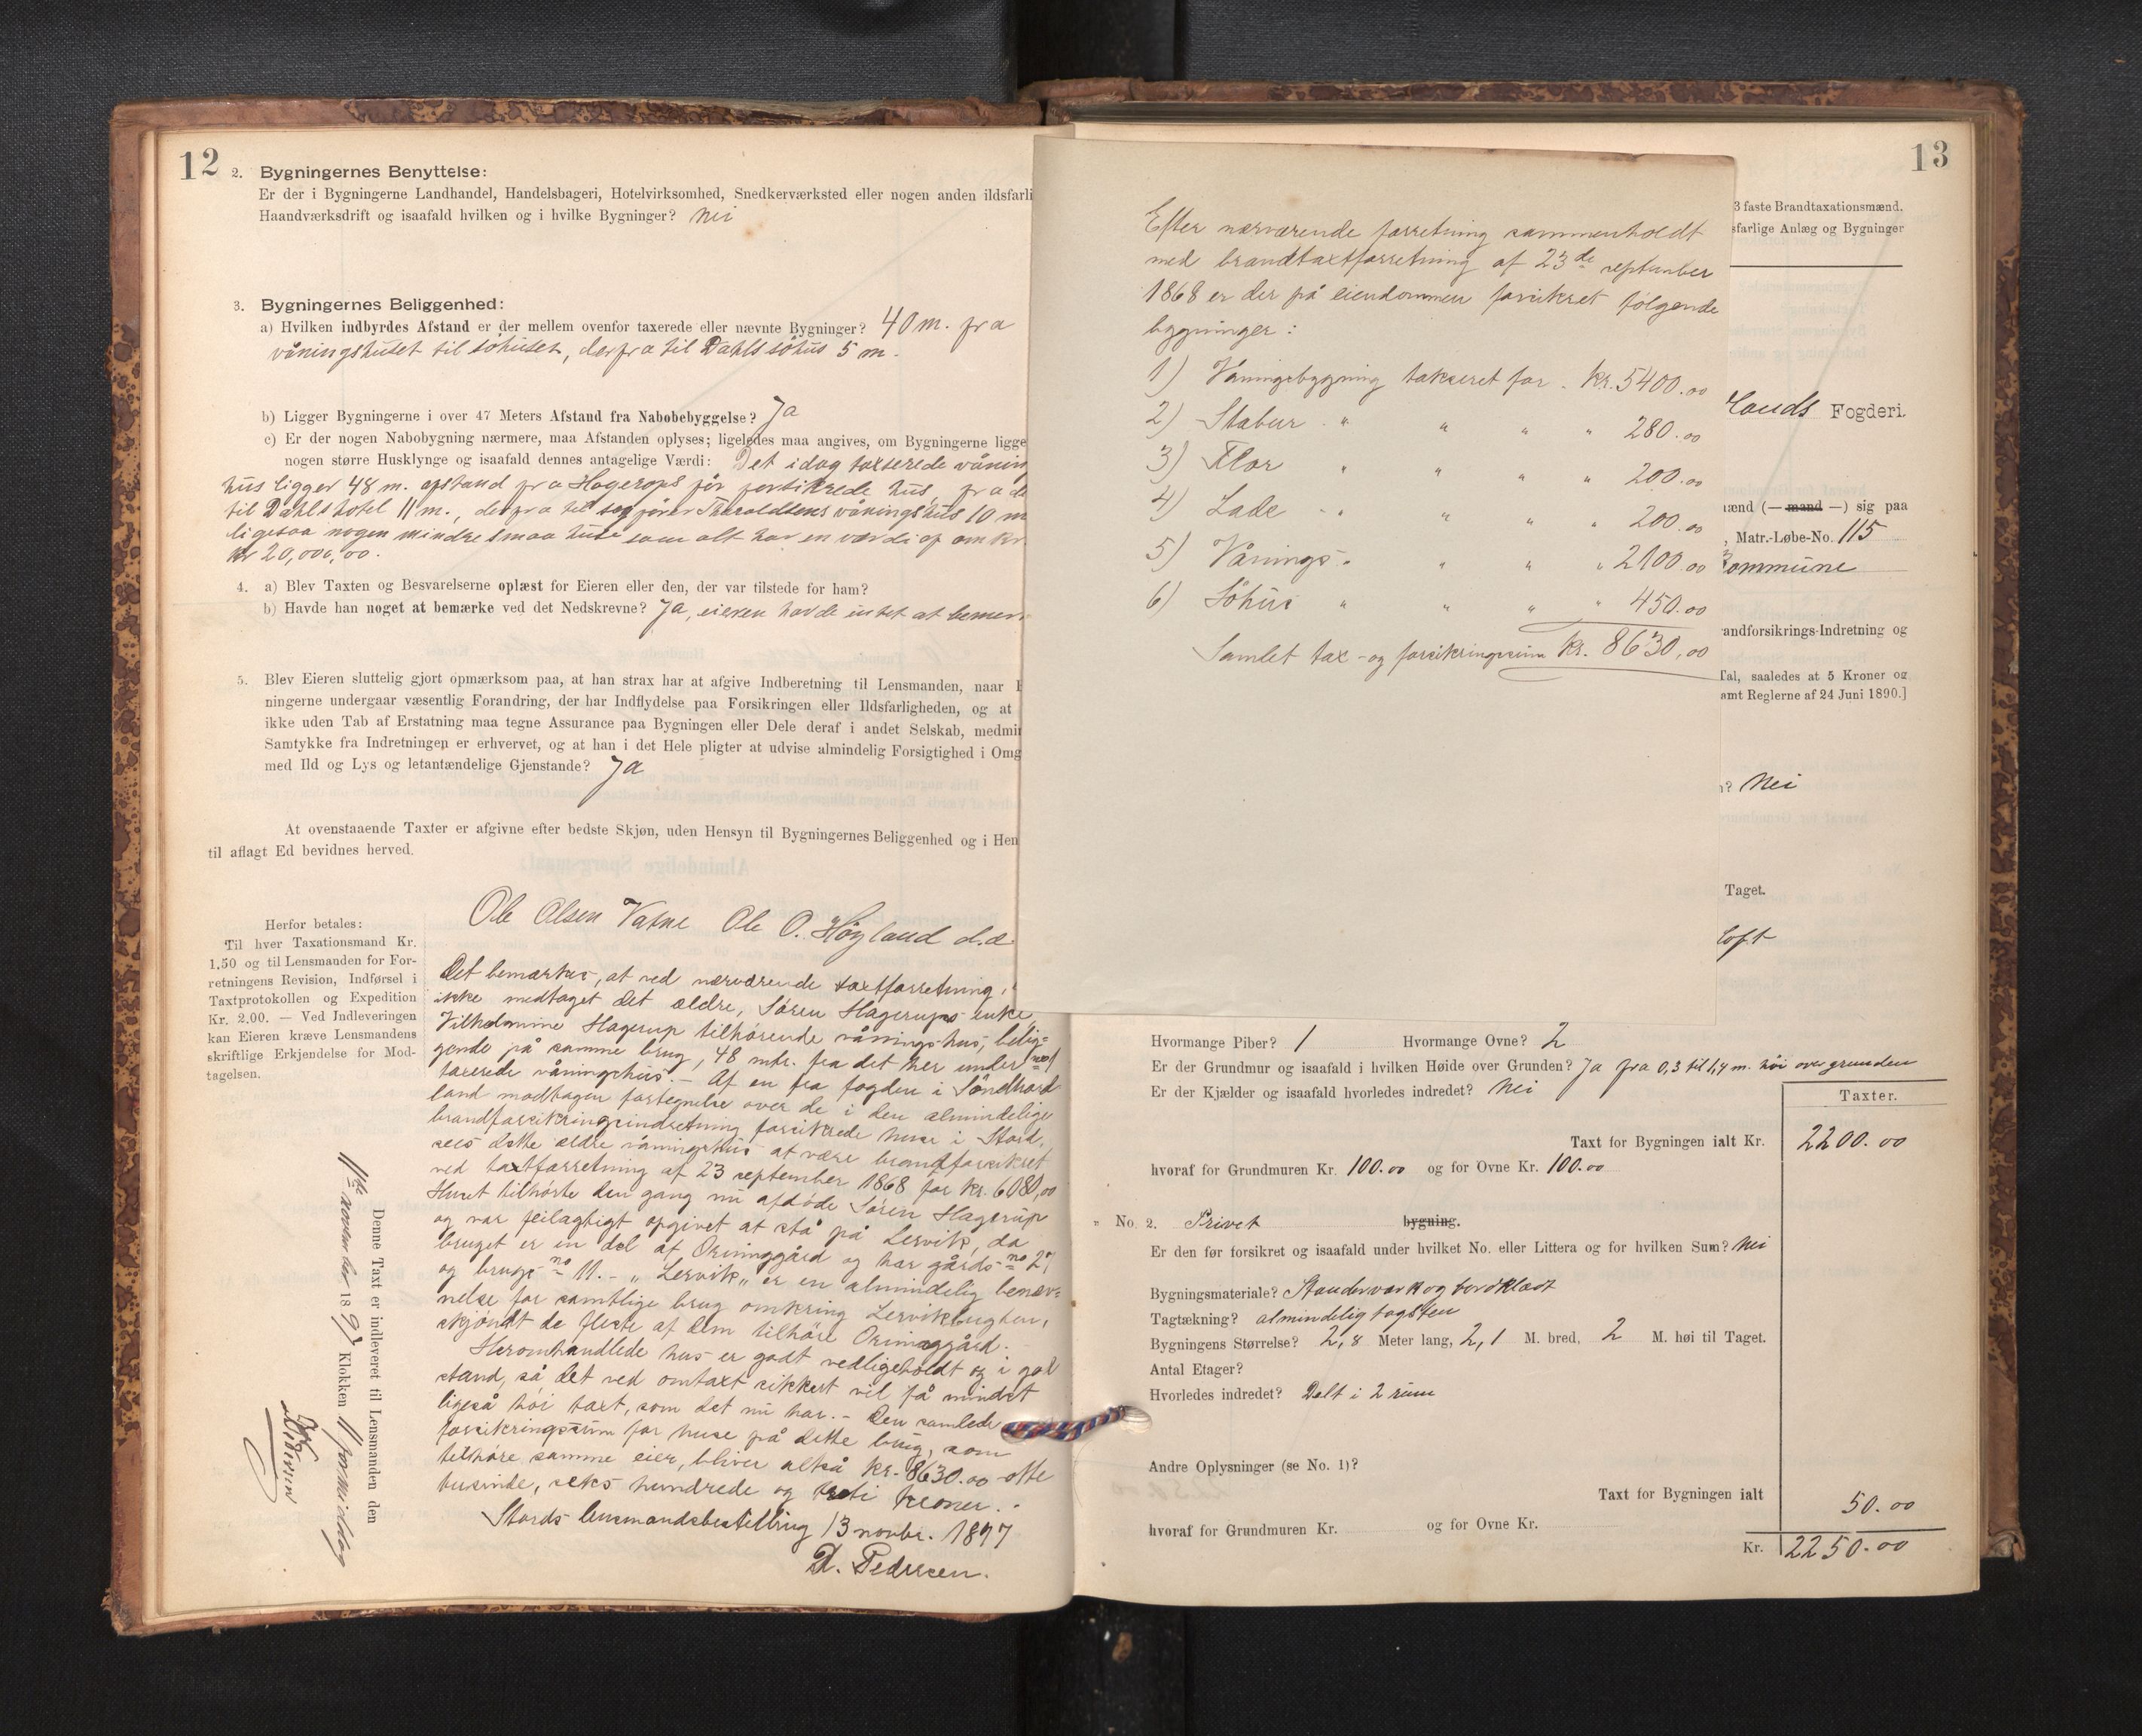 12
2. Bygningernes Benyttelse:
Er der i Bygningerne Landhandel, Handelsbageri, Hotelvirksomhed, Snedkerværksted eller nogen anden ildsfarli
Haandværksdrift og isaafald hvilken og i hvilke Bygninger? Nei
3. Bygningernes Beliggenhed:
a) Hvilken indbyrdes Afstand er der mellem ovenfor taxerede eller nævnte Bygninger? 40 m. fra
våningshuset til söhuset, derfra til Dahls söhus 5 m.
b) Ligger Bygningerne i over 47 Meters Afstand fra Nabobebyggelse? Ja
c) Er der nogen Nabobygning nærmere, maa Afstanden oplyses; ligeledes maa angives, om Bygningerne ligge
nogen større Husklynge og isaafald dennes antagelige Værdi: Det idag taxserede våning
hus ligger 48 m. afstand fra Hagerups för forsikrede hus, fra de
til Dahls hotel 11 m., derfra til Tharaldsens våningshus 10 m
ligesaa nogen mindre smaa huse som alt har en værdi af om kr
kr 20,000,00.
4. a) Blev Taxten og Besvarelserne oplæst for Eieren eller den, der var tilstede for ham?
b) Havde han noget at bemærke ved det Nedskrevne? Ja, eieren havde intet at bemær
5. Blev Eieren sluttelig gjort opmærksom paa, at han strax har at afgive Indberetning til Lensmanden, naar
ningerne undergaar væsentlig Forandring, der har Indflydelse paa Forsikringen eller Ildsfarligheden, og at
ikke uden Tab af Erstatning maa tegne Assurance paa Bygningen eller Dele deraf i andet Selskab, medmin
Samtykke fra Indretningen er erhvervet, og at han i det Hele pligter at udvise almindelig Forsigtighed i Omg
med Ild og Lys og letantændelige Gjenstande? Ja
At ovenstaaende Taxter er afgivne efter bedste Skjøn, uden Hensyn til Bygningernes Beliggenhed og i Hen
til aflagt Ed bevidnes herved.
Ole Olsen Vatne Ole O. Höyland
Herfor betales:
Til hver Taxationsmand Kr.
1.50 og til Lensmanden for For-
retningens Revision, Indførsel i
Taxtprotokollen og Expedition
Kr. 2.00. — Ved Indleveringen
kan Eieren kræve Lensmandens
skriftlige Erkjendelse for Mod-
tagelsen.
Det bemærkes, at ved nærværende taxtforretning,
ikke medtaget det ældre, Sören Hagerups enke,
Vilhelmine Hagerup tilhörende våningshus, belig-
gende på samme brug, 48 mtr. fra det her under no 1
taxerede våningshus. – Af en fra fogden i Söndhord
land modtagen fortegnelse over de i den almindelige
brandforsikringsindretning forsikrede huse i Stord,
sees dette ældre våningshus at være brandforsikret
ved taxtforretning af 23 september 1868 for kr. 6080,00
Huset tilhörte den gang nu afdöde Sören Hagerup
og var feilagtigt opgivet at stå på Lervik, da
bruget er en del af Orninggård og har gårds no 27
og brugs no 11. – „Lervik„ er en almindelig benæv-
nelse for samtlige brug omkring Lervikbugten,
skjöndt de fleste af dem tilhöre Orninggård.
Heromhandlede hus er godt vedligeholdt og i god
stand, så det ved omtaxt sikkert vil få mindst
ligeså höi taxt, som det nu har. – Den samlede
forsikringssum for huse på dette brug, som
tilhöre samme eier, bliver altså kr. 8630.00 otte
tusinde, seks hundrede og treti kroner. –
Stords lensmandsbestilling 13 novbr. 1897
D. Pedersen.
Denne Taxt er indleveret til Lensmanden den
11te november 1897 Klokken 11 formiddag
13
Efter nærværende forretning sammenholdt
med brandtaxtforretning af 23de september
1868 er der på eiendommen forsikret fölgende
bygninger:
1) Våningsbygning takseret for . kr. 5400.00
2) Stabur . " " " " 280.00
3) Flor " " " " 200.00
4) Lade . . " " " 200.00
5) Vånings " " " " 2100.00
6) Söhus " " " " 450.00
Samlet tax- og forsikringssum kr. 8630,00
3 faste Brandtaxationsmænd.
sfarlige Anlæg og Bygninger
lands Fogderi.
ænd (— mand —) sig paa
, Matr.-Løbe-No. 115
Kommune
andforsikrings-Indretning og
Tal, saaledes at 5 Kroner og
amt Reglerne af 24 Juni 1890.]
? Nei
Taget.
loft
Hvormange Piber? 1 Hvormange Ovne? 2
Er der Grundmur og isaafald i hvilken Høide over Grunden? Ja fra 0,3 til 1,4 m. höi over grunden
Er der Kjælder og isaafald hvorledes indredet? Nei
Taxter.
Taxt for Bygningen ialt Kr. 2200.00
hvoraf for Grundmuren Kr. 100.00 og for Ovne Kr. 100.00
" No. 2. Privet bygning.
Er den før forsikret og isaafald under hvilket No. eller Littera og for hvilken Sum? Nei
Bygningsmateriale? Standerværk og bordklædt
Tagtækning? almindelig tagsten
Bygningens Størrelse? 2,8 Meter lang, 2,1 M. bred, 2 M. høi til Taget.
Antal Etager?
Hvorledes indredet? Delt i 2 rum
Andre Oplysninger (se No. 1)?
Taxt for Bygningen ialt 50.00
hvoraf for Grundmuren Kr. og for Ovne Kr.
Kr. 2250.00